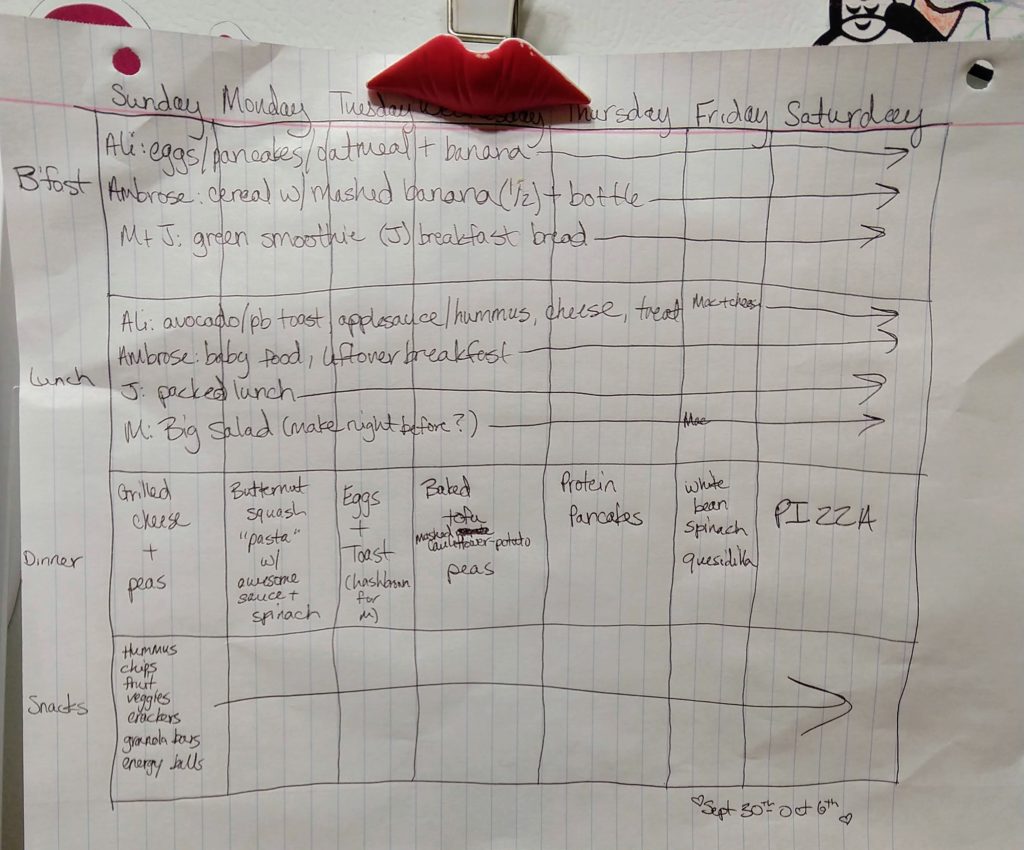 Sunday Monday Tuesday Wednesday Thursday Friday Saturday
B'fast
Ali: eggs/pancakes/oatmeal + banana
Ambrose: cereal w/ mashed banana (1/2) + bottle
M+J: green smoothie (J) breakfast bread
Lunch
Ali: avocado/pb toast applesauce/hummus, cheese, treat
Mac+chees
Ambrose: baby food, leftover breakfast
J: packed lunch
M: Big Salad (make night before?)
Mac
Dinner
Grilled
cheese
+
peas
Butternut
squash
"pasta"
w/
awesome
sauce +
spinach
Eggs
+
Toast
(hashbrown
for
M)
Baked
tofu
mashed
cauliflower-potato
peas
Protein
Pancakes
white
bean
spinach
quesidilla
PIZZA
Snacks
Hummus
chips
fruit
veggies
crackers
granola bars
energy balls
♡Sept 30th - Oct 6th♡